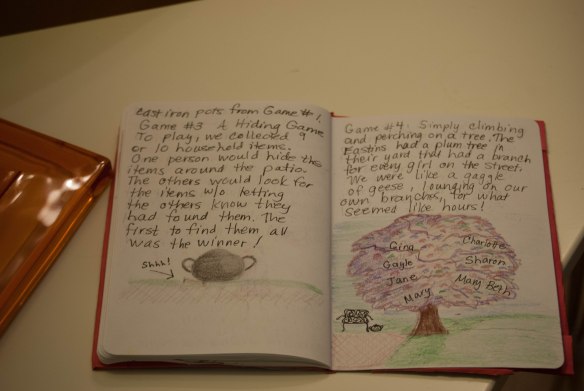 cast iron pots from Game #1.
Game #3 A Hiding Game
To play, we collected 9
or 10 household items.
One person would hide the
items around the patio.
The others would look for
the items w/o letting
the others know they
had found them. The
first to find them all
was the winner!
Shhh!
Game #4: Simply climbing
and perching on a tree. The
Eastins had a plum tree in
their yard that had a branch
for every girl on the street.
We were like a gaggle
of geese, lounging on our
own branches, for what
seemed like hours!
Gina
Charlotte
Gayle
Sharon
Jane
Mary Beth
Mary